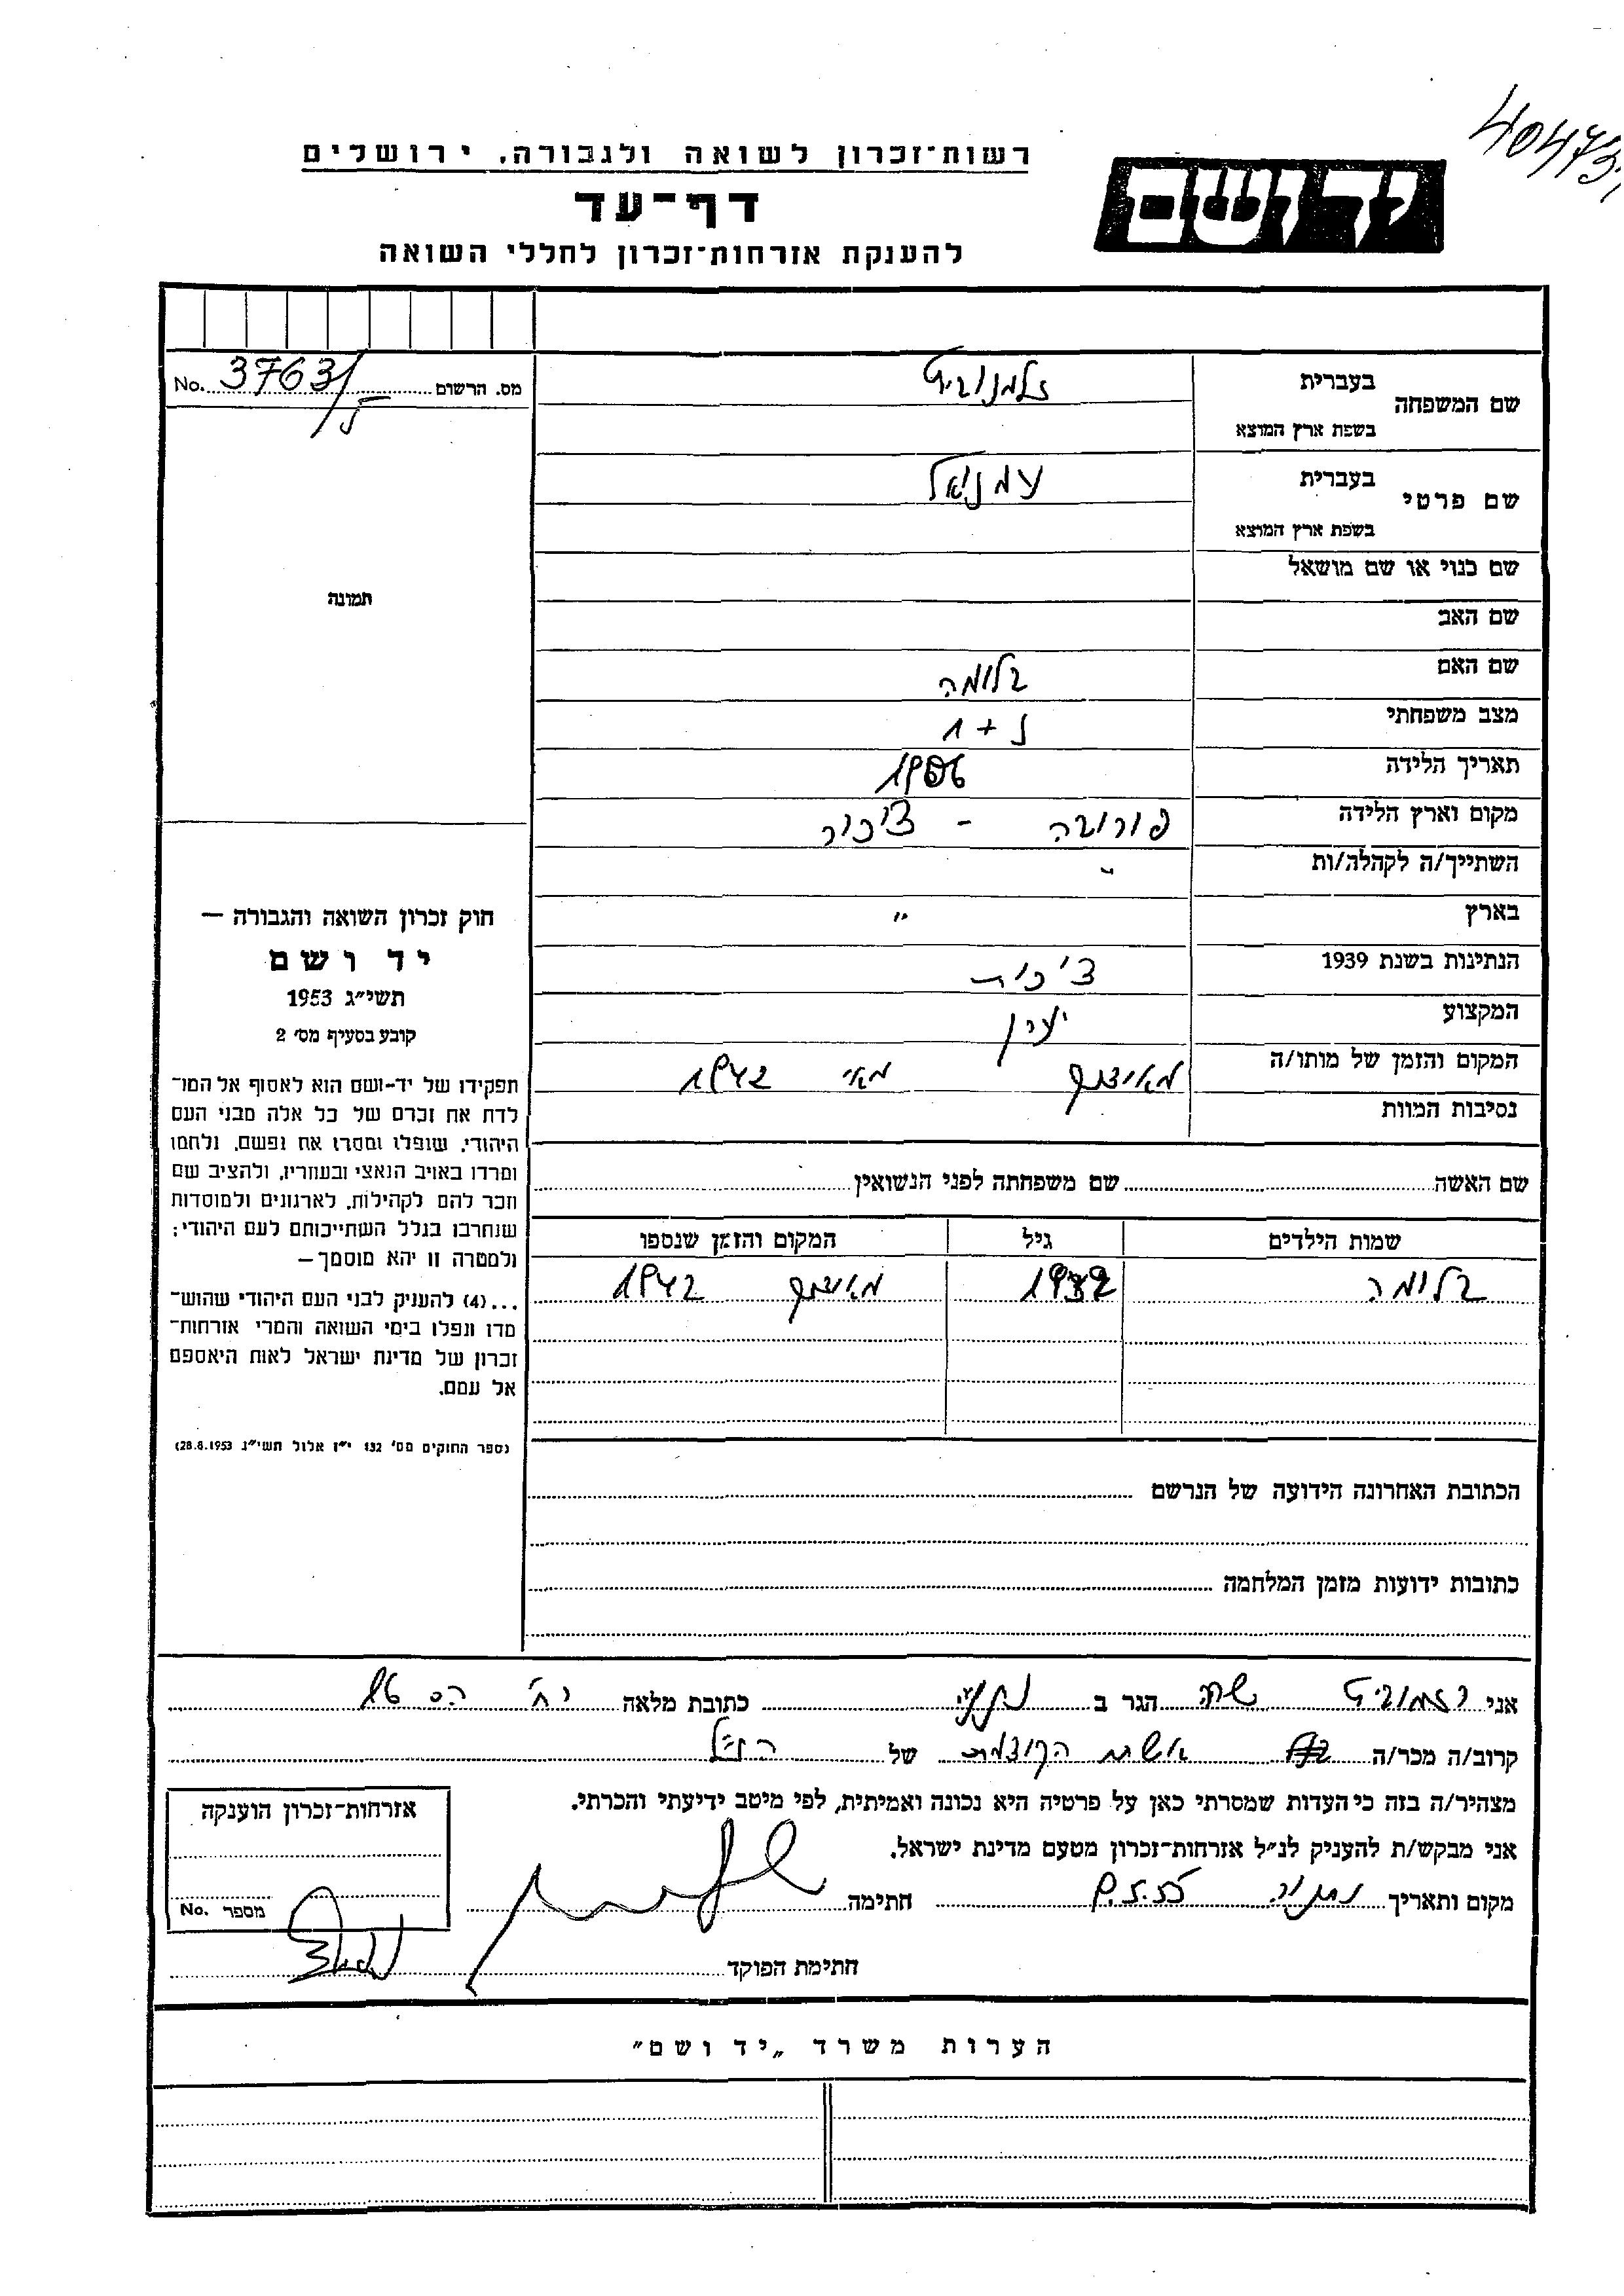 404731
רשות־זכרון לשואה ולגבורה, ירושלים
יד ושם
דף־עד
להענקת אזרחות־זכרון לחללי השואה
מס. הרשום 3763/ No.
שם המשפחה בעברית זלמנוביץ
בשפת ארץ המוצא
שם פרטי בעברית עמנואל
בשפת ארץ המוצא
שם כנוי או שם מושאל
שם האב
שם האם בלומה
מצב משפחתי נ + 1
תאריך הלידה 1906
מקום וארץ הלידה פורובה - צ'כיה
השתייך/ה לקהלה/ות "
בארץ "
הנתינות בשנת 1939 צ'כית
המקצוע יערן
המקום והזמן של מותו/ה מאי 1942
נסיבות המוות
תמונה
חוק זכרון השואה והגבורה —
יד ושם
תשי״ג 1953
קובע בסעיף מס׳ 2
תפקידו של יד-ושם הוא לאסוף אל המו־
לדת את זכרם של כל אלה מבני העם
היהודי, שנפלו ומסרו את נפשם, נלחמו
ומרדו באויב הנאצי ובעוזריו, ולהציב שם
וזכר להם לקהילות, לארגונים ולמוסדות
שנחרבו בגלל השתייכותם לעם היהודי;
ולמטרה זו יהא מוסמך —
...(4) להעניק לבני העם היהודי שהוש־
מדו ונפלו בימי השואה והמרי אזרחות־
זכרון של מדינת ישראל לאות היאספם
אל עמם.
(ספר החוקים מס׳ 132 י״ז אלול תשי״ג 28.8.1953)
שם האשה שם משפחתה לפני הנשואין
שמות הילדים גיל המקום והזמן שנספו
בלומה 1932 1942
הכתובת האחרונה הידועה של הנרשם
כתובות ידועות מזמן המלחמה
אני שרה הגר ב נתניה כתובת מלאה רח' 16
קרוב/ה מכר/ה של הנ״ל
מצהיר/ה בזה כי העדות שמסרתי כאן על פרטיה היא נכונה ואמיתית, לפי מיטב ידיעתי והכרתי.
אני מבקש/ת להעניק לנ״ל אזרחות־זכרון מטעם מדינת ישראל.
מקום ותאריך נתניה 9.5.55 חתימה
חתימת הפוקד
אזרחות־זכרון הוענקה
מספר No.
הערות משרד „יד ושם״